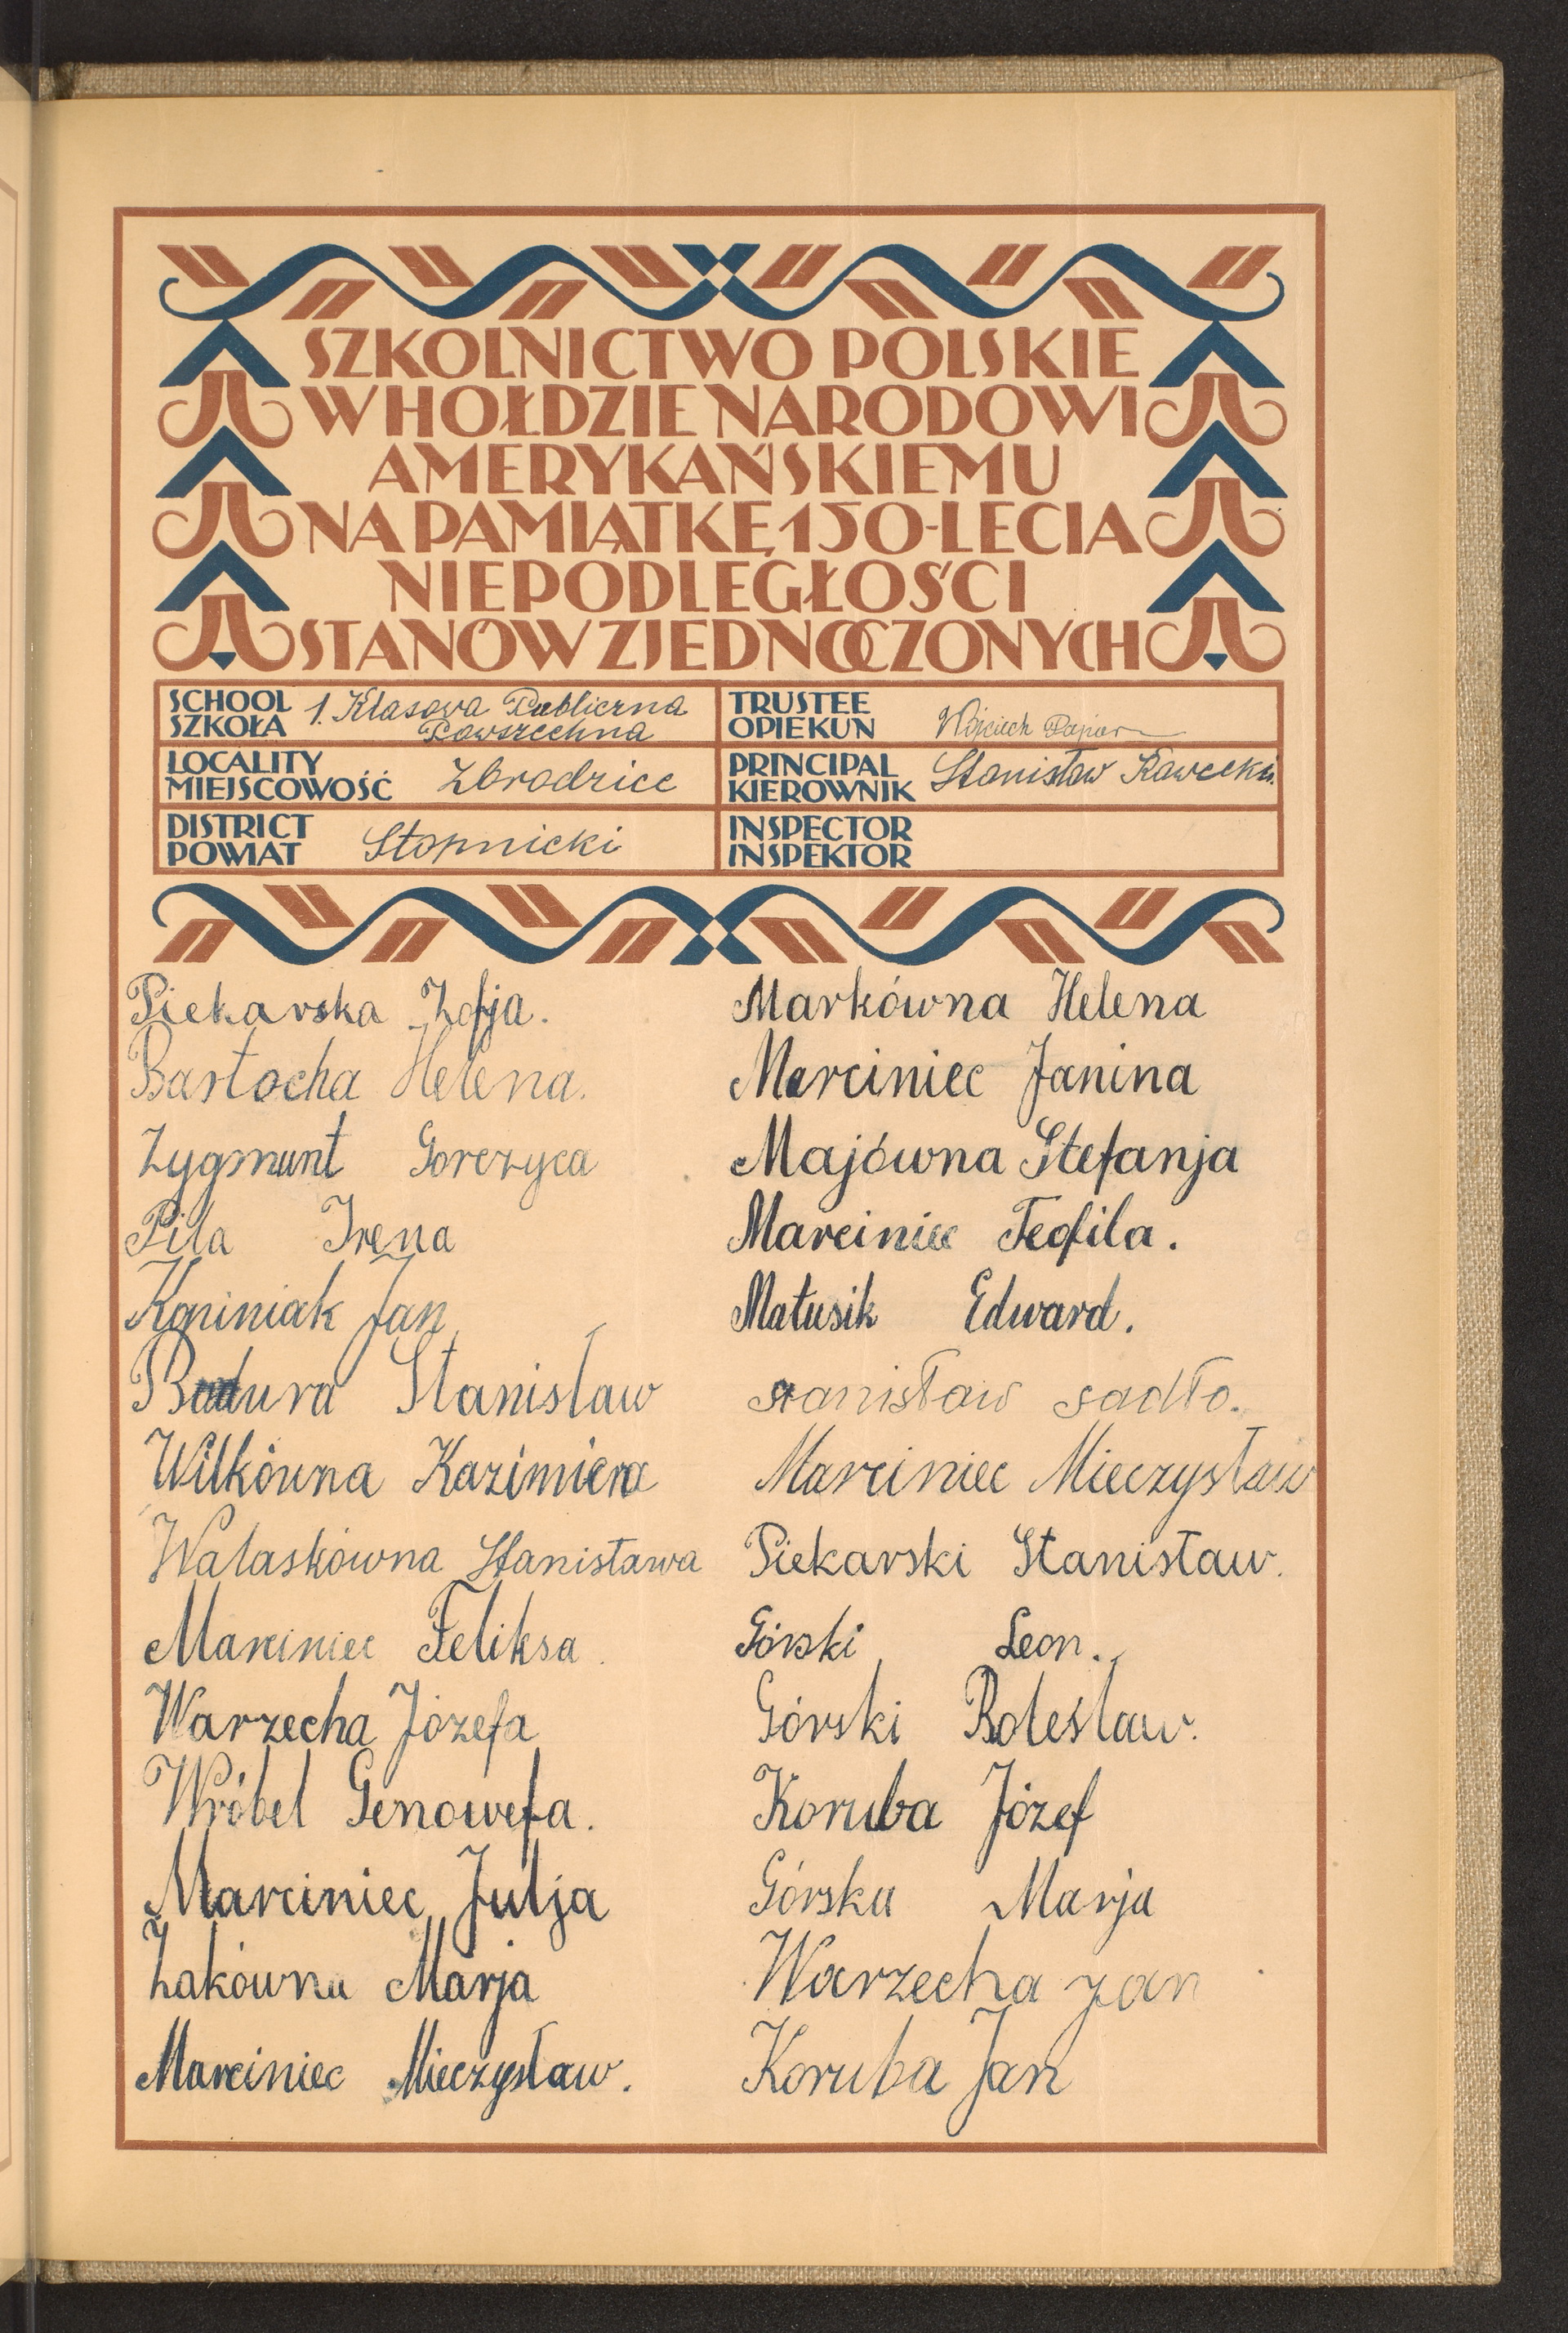 SZKOLNICTWO POLSKIE
W HOŁDZIE NARODOWI
AMERYKAŃSKIEMU
NA PAMIĄTKĘ 150-LECIA
NIEPODLEGŁOŚCI
STANÓW ZJEDNOCZONYCH
SCHOOL
SZKOŁA
1. Klasowa Publiczna
Powszechna
TRUSTEE
OPIEKUN
Wojciech
LOCALITY
MIEJSCOWOŚĆ
Zbrodzice
PRINCIPAL
KIEROWNIK
Stanisław Kawecki
DISTRICT
POWIAT
Stopnicki
INSPECTOR
INSPEKTOR
Piekarska Zofja.
Bartocha Helena.
Zygmunt Gorczyca
Piła Irena
Jan
Badura Stanisław
Wilkówna Kazimiera
Walaskówna Stanisława
Marciniec Feliksa.
Warzecha Józefa
Wróbel Genowefa.
Marciniec Julja
Żakówna Marja
Marciniec Mieczysław.
Markówna Helena
Marciniec Janina
Majówna Stefanja
Marciniec Teofila.
Matusik Edward.
stanisław sadło.
Marciniec Mieczysław
Piekarski Stanisław.
Górski Leon.
Górski Bolesław.
Koruba Józef
Górska Marja
Warzecha Jan
Koruba Jan